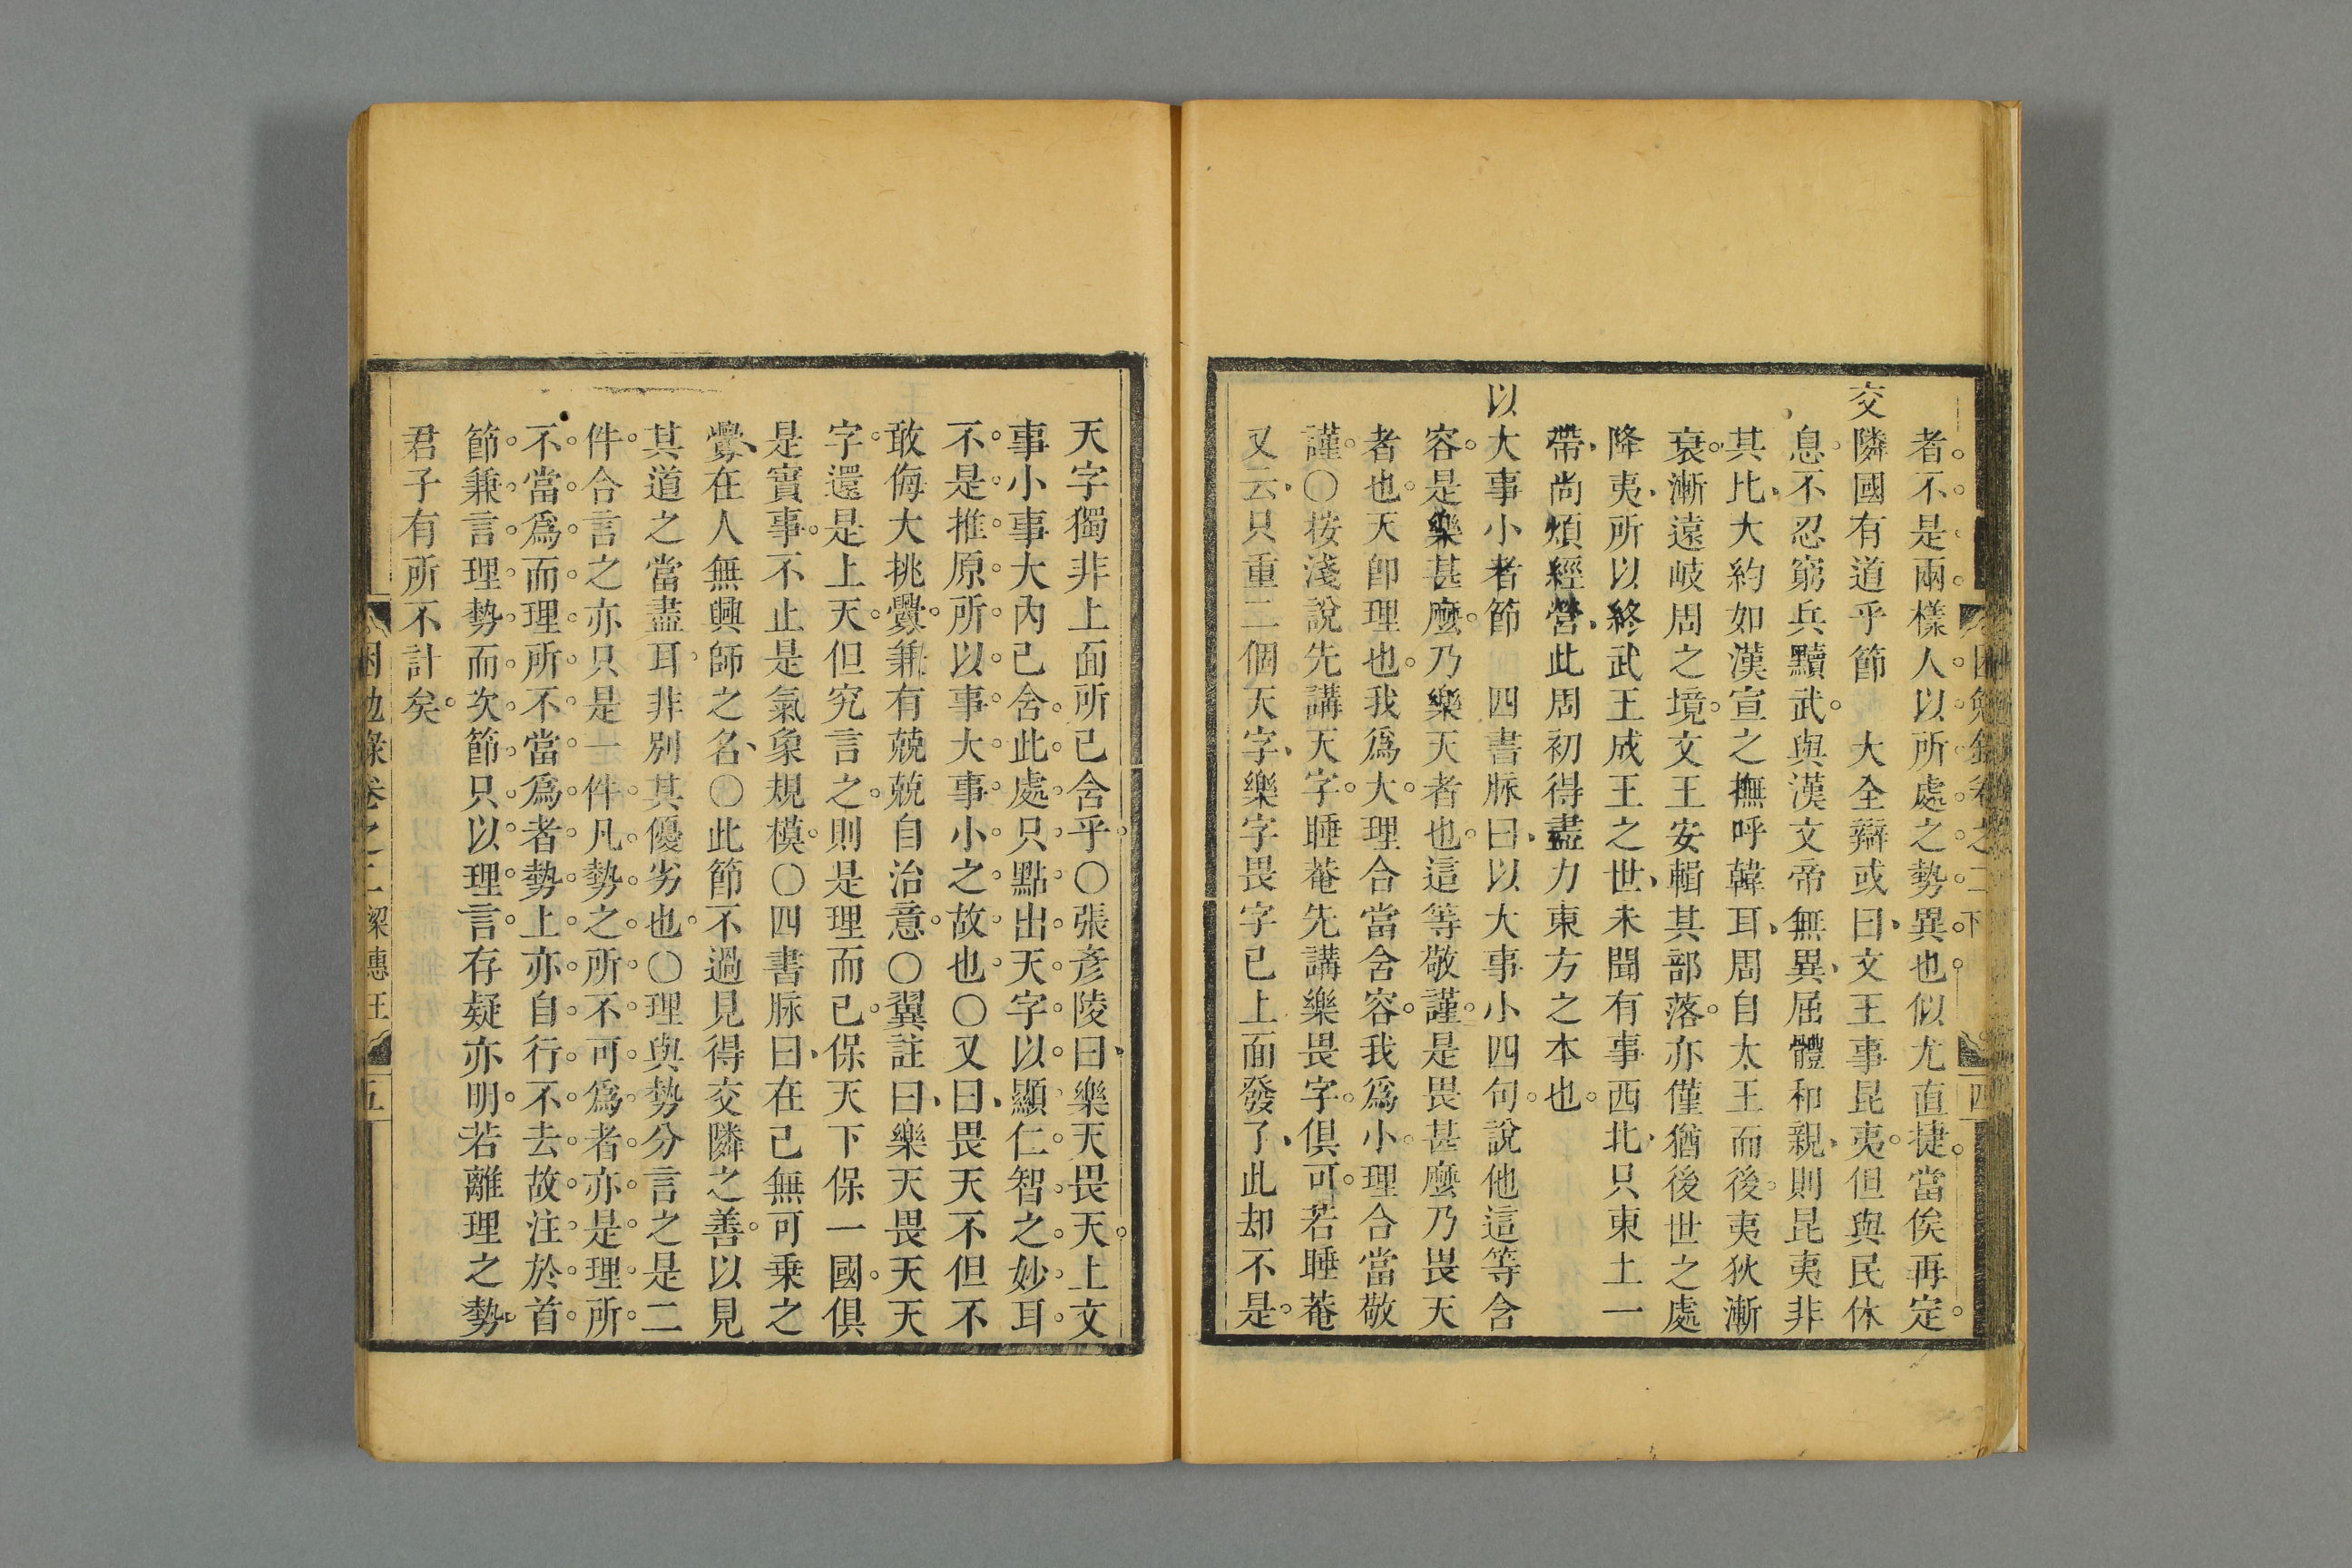 者不是兩樣人以所處之勢異也似尤直捷當俟再定
交隣國有道乎節　大全辯或曰文王事昆夷但與民休
息不忍窮兵黷武與漢文帝無異屈體和親則昆夷非
其比大約如漢宣之撫呼韓耳周自太王而後夷狄漸
衰漸遠岐周之境文王安輯其部落亦僅猶後世之處
降夷所以終武王成王之世未聞有事西北只東土一
帶尚煩經營此周初得盡力東方之本也
以大事小者節　四書脉曰以大事小四句說他這等含
容是樂甚麼乃樂天者也這等敬謹是畏甚麼乃畏天
者也天卽理也我爲大理合當含容我爲小理合當敬
謹○按淺說先講天字睡菴先講樂畏字俱可若睡菴
又云只重二個天字樂字畏字已上面發了此却不是
天字獨非上面所已含乎○張彥陵曰樂天畏天上文
事小事大內已含此處只點出天字以顯仁智之妙耳
不是推原所以事大事小之故也○又曰畏天不但不
敢侮大挑釁兼有兢兢自治意○翼註曰樂天畏天天
字還是上天但究言之則是理而已保天下保一國俱
是實事不止是氣象規模○四書脉曰在己無可乘之
釁在人無興師之名○此節不過見得交隣之善以見
其道之當盡耳非別其優劣也○理與勢分言之是二
件合言之亦只是一件凡勢之所不可爲者亦是理所
不當爲而理所不當爲者勢上亦自行不去故注於首
節兼言理勢而次節只以理言存疑亦明若離理之勢
君子有所不計矣
困勉錄卷之二　梁惠王　五